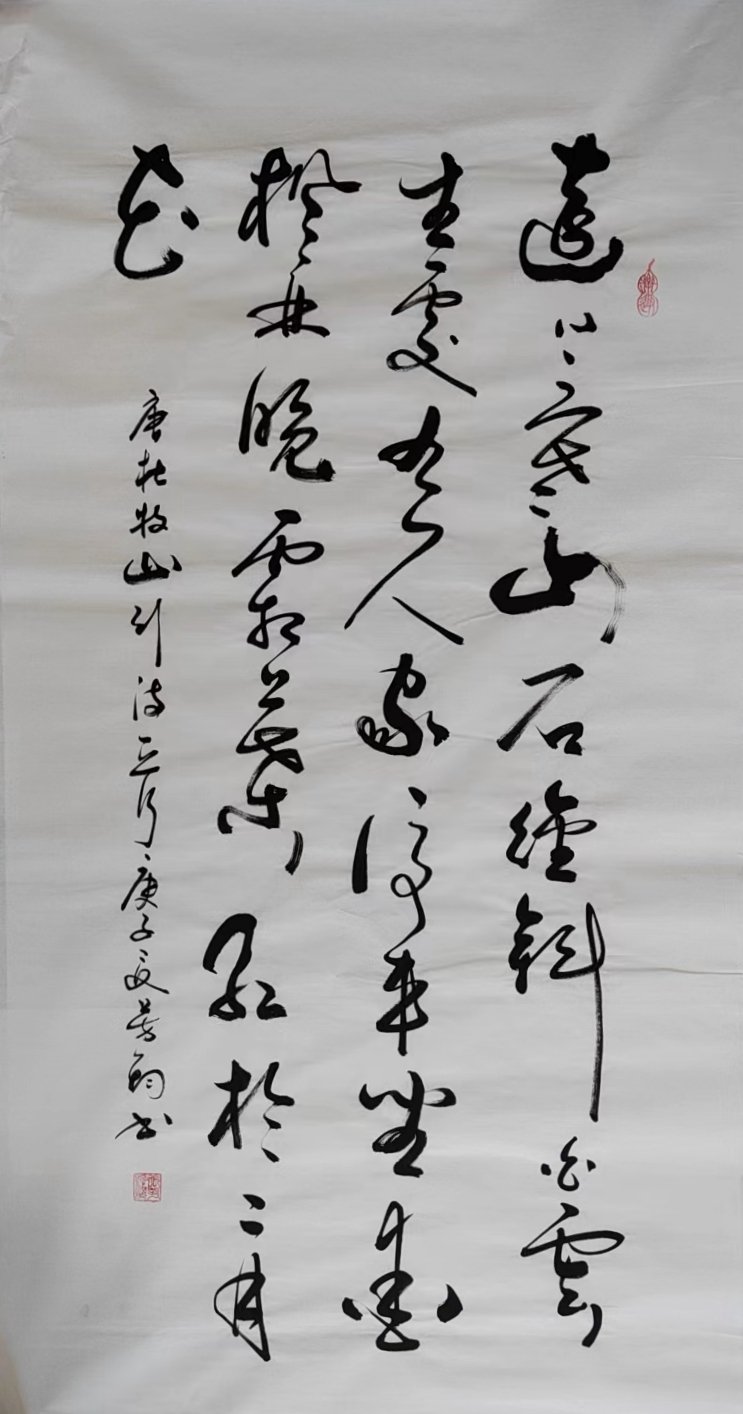 遠上寒山石經斜白雲
生處有人家停車坐愛
楓林晚霜葉紅於二月
花
唐杜牧山行詩庚子夏書